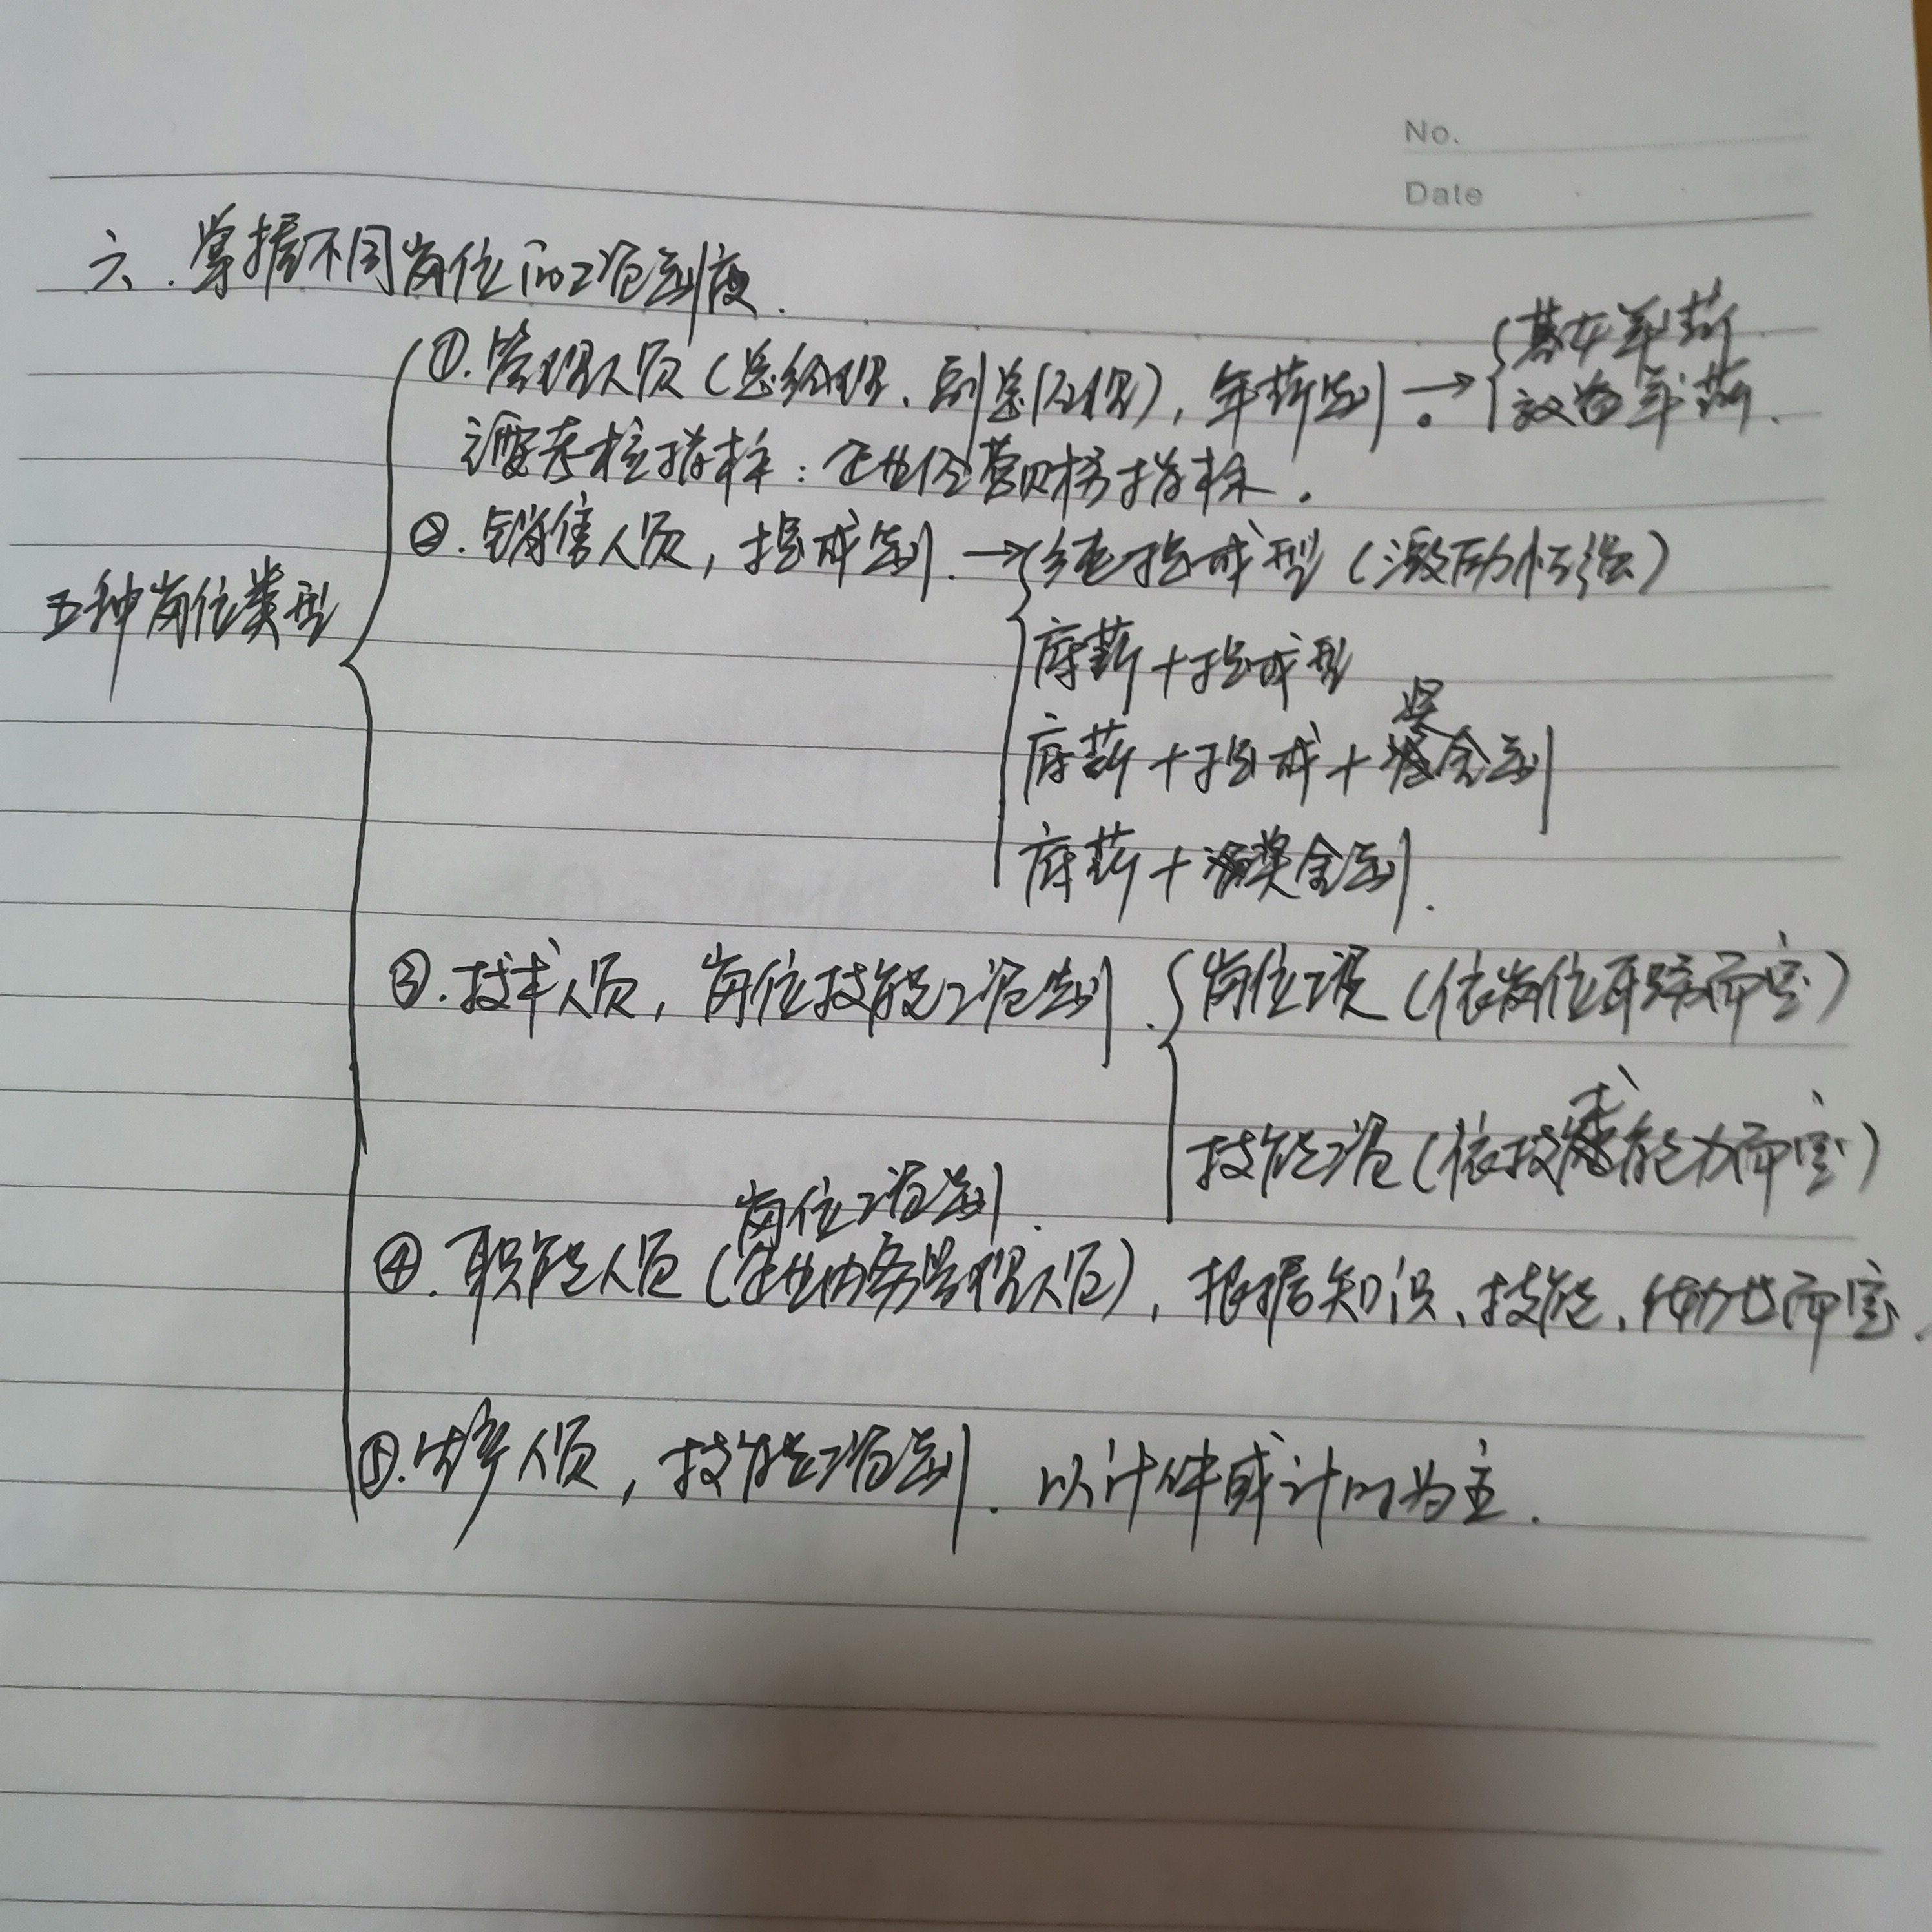 No.
Date
六.掌握不同岗位的工资制度.
五种岗位类型
①.管理人员(总经理、副总经理),年薪制.→
基本年薪
效益年薪.
主要考核指标:企业经营财务指标.
②.销售人员,提成制.→纯提成型(激励性强)
底薪+提成型
底薪+提成+奖金制
底薪+奖金制.
③.技术人员,岗位技能工资制.
岗位工资(依岗位职责而定)
技能工资(依技术能力而定)
岗位工资制.
④.职能人员(企业内务管理人员),根据知识、技能、而定.
⑤.生产人员,技能工资制.以计件或计时为主.